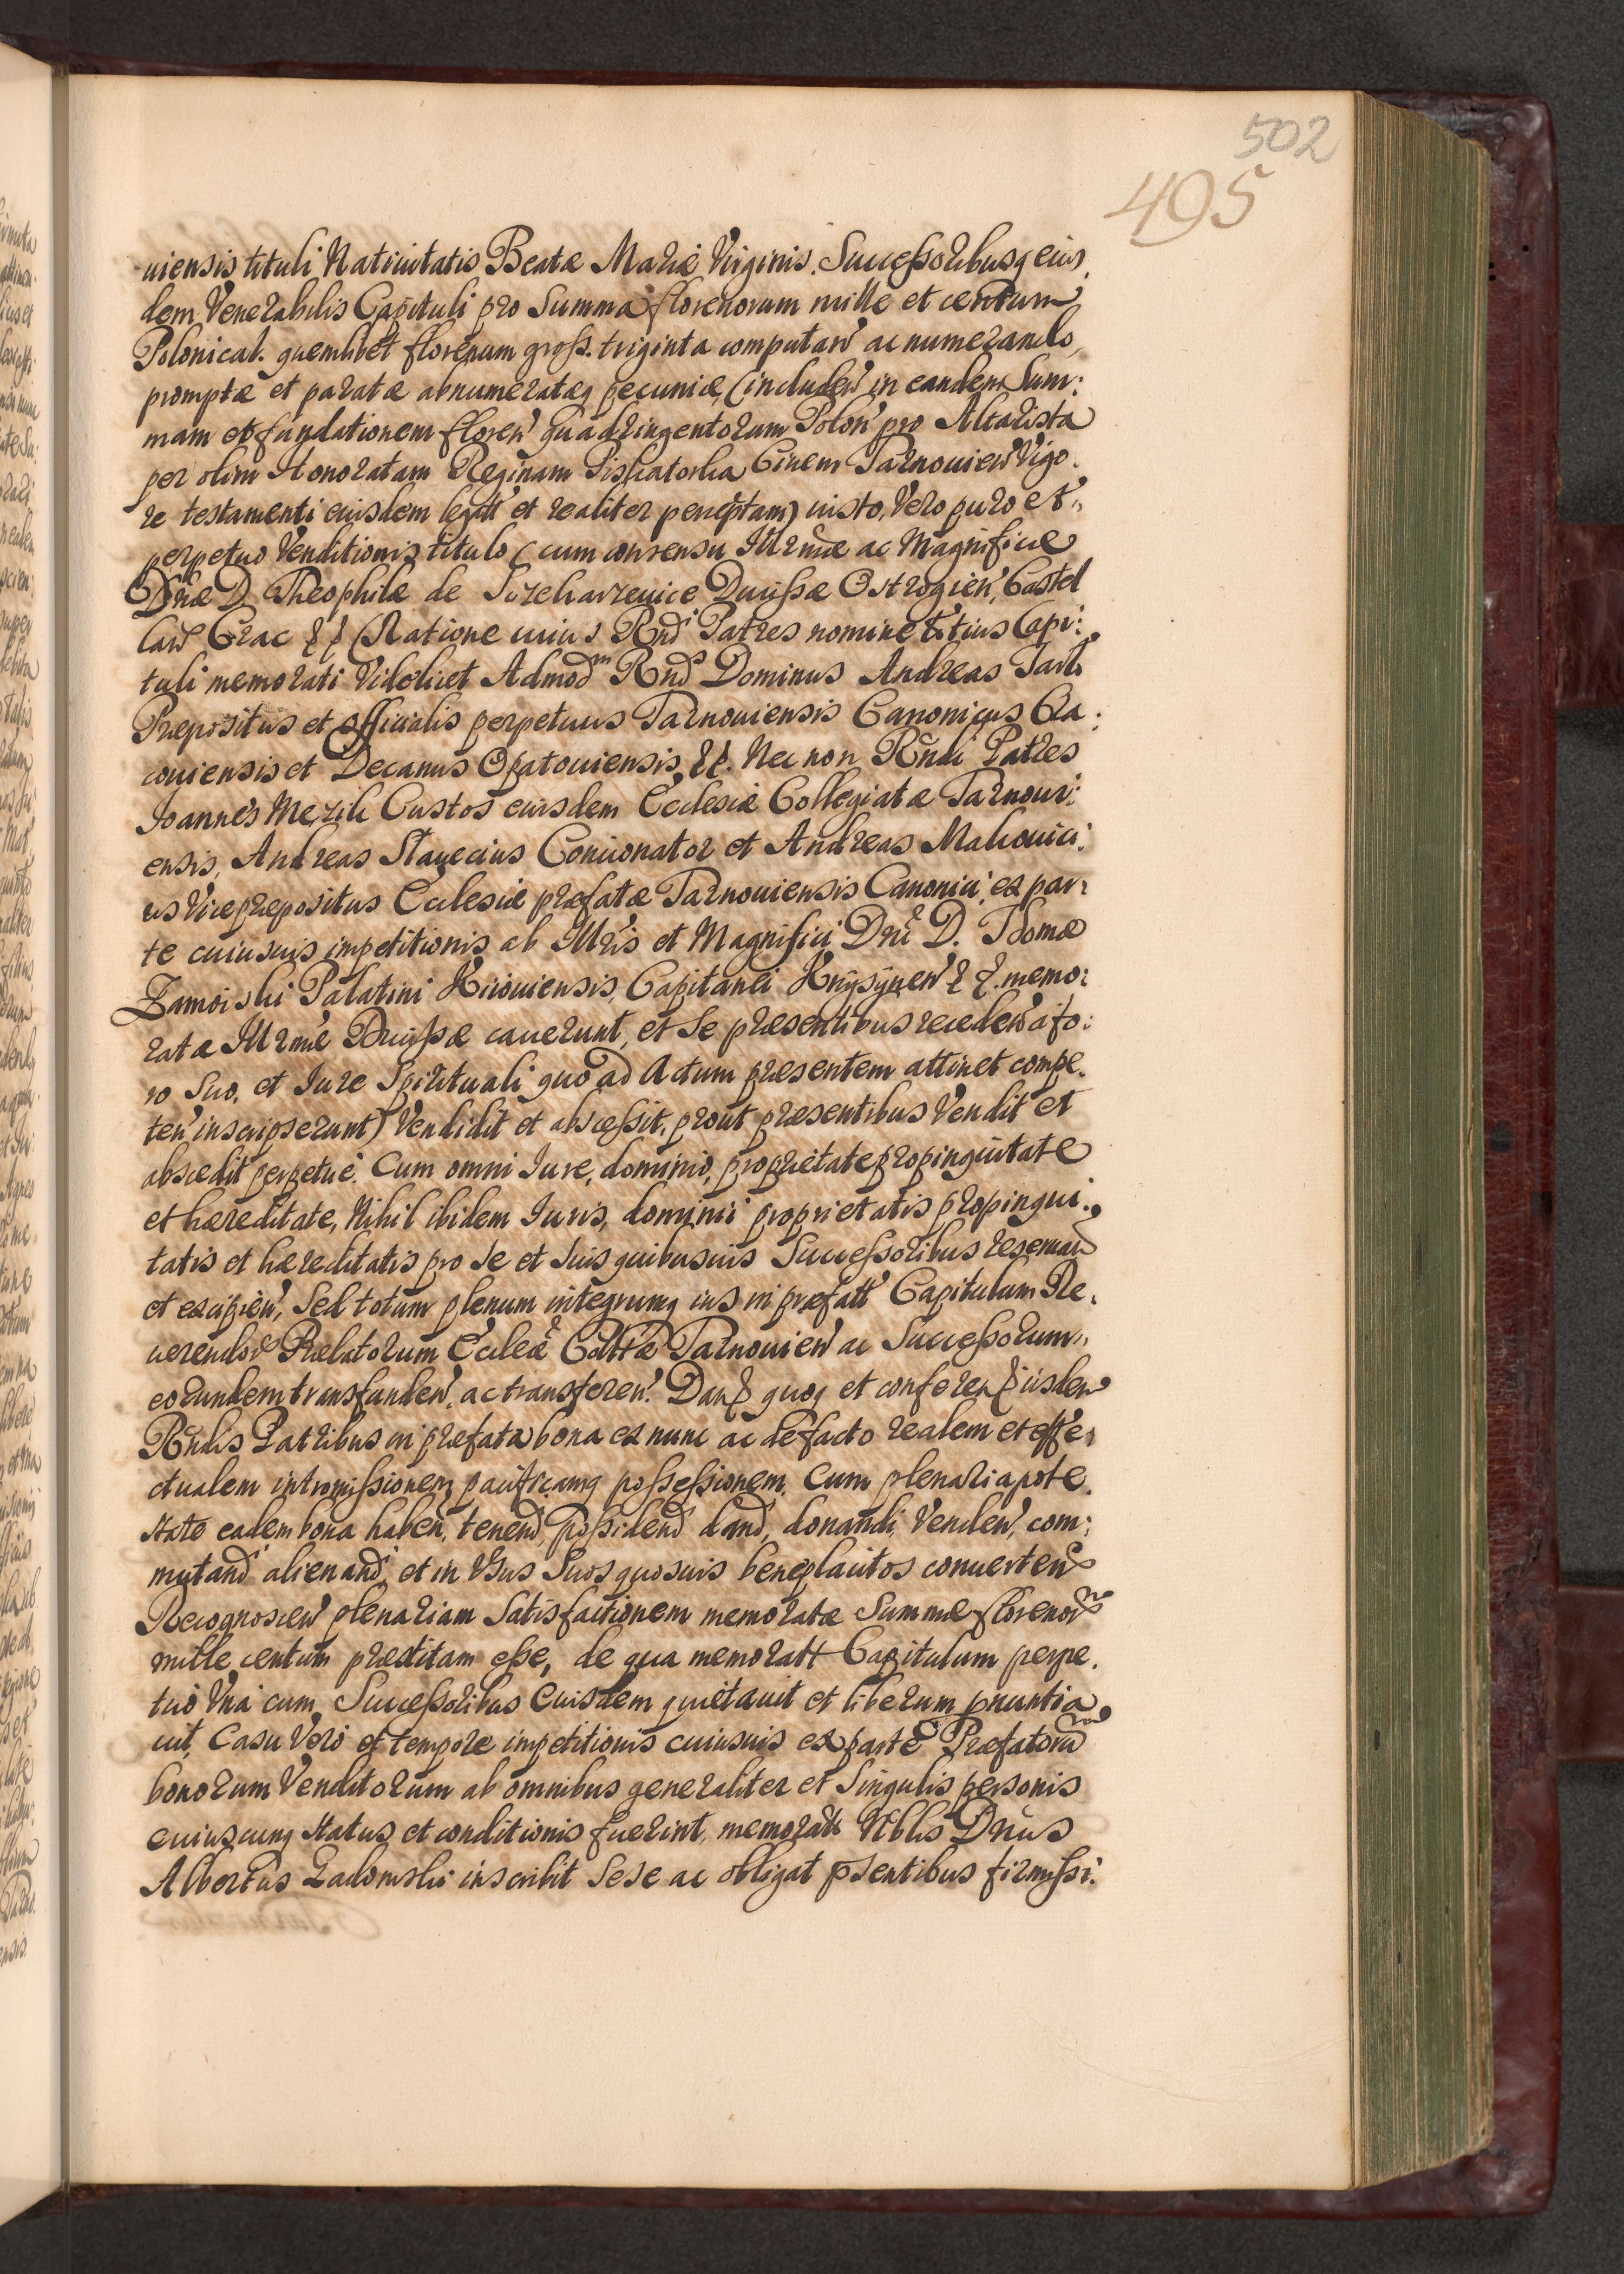 502
495
uiensis tituli Natiuitatis Beatæ Mariæ Virginis. Successoribusq eius,
dem Venerabilis Capituli pro Summa florenorum mille et centum
Polonical. quemlibet florenum gross. triginta computan ac numerando,
promptæ et paratæ abnumeratæq pecuniæ, (includen in eandem Sum:
mam et fundationem floren quadringentorum Polon pro Altarista
per olim Honoratam Reginam Piskatorka Ciuem Tarnouien Vigo.
re testamenti eiusdem legatt et realiter perceptam) iusto, Vero puro et
perpetuo Venditionis titulo (cum consensu Illrmæ ac Magnificæ
Dnæ D. Theophilæ de Ducissæ Ostrogien, Castel
lan Crac (Ratione cuius Rndi Patres nomine totius Capi:
tuli memorati Videlicet Admodm Rnds Dominus Andreas Tarlo
Præpositus et officialis perpetuus Tarnouiensis Canonicus Cra.
couiensis et Decanus Opatouiensis, Nec non Rndi Patres
Ioannes Mezik Custos eiusdem Ecclesiæ Collegiatæ Tarnoui:
ensis, Andreas Stavecius Concionator et Andreas Makouici:
us Vicepræpositus Ecclesiæ præfatæ Tarnouiensis Canonici, ex par:
te cuiusuis impetitionis ab Illris et Magnifici Dni D. Thomæ
Zamoiski Palatini Kiiouiensis, Capitanei Knysynen memo:
ratæ Illrmæ Ducissæ cauerunt, et se præsentibus receden a fo:
ro Suo, et Iure Spirituali quo ad Actum præsentem attinet compe.
ten inscripserunt) Vendidit et abscessit, prout præsentibus Vendit et
abscedit perpetue. Cum omni Iure, dominio, proprietate propinquitate
et hæreditate, Nihil ibidem Iuris, dominii proprietatis propinqui.
tatis et hæreditatis pro se et suis quibusuis Successoribus reseruan
et excipien, Sed totum plenum integrumq ius in præfatt Capitulum Re.
uerendor Prælatorum Eccleæ Colltæ Tarnouien ac Successorum
eorundem transfunden, ac transferen. Dan quoq et conferen iisdem
Rndis Patribus in præfata bona ex nunc ac de facto realem et effe.
ctualem intromissionem pacificamq possessionem. Cum plenaria pote.
state eadem bona haben, tenend, possidend dand, donandi, Venden, com:
mutand alienand, et in Vsus Suos quosuis beneplacitos conuertend
Recognoscen plenariam Satisfactionem memoratæ Summæ florenorum
mille centum præstitam esse, de qua memoratt Capitulum perpe.
tuo Vna cum Successoribus Eiusdem quietauit et liberum pnuntia
uit, Casu Vero et tempore impetitionis cuiusuis ex parte Præfatorum
bonorum Venditorum ab omnibus generaliter et Singulis personis
cuiuscunq Status et conditionis fuerint, memoratt Nblis Dnus
Albertus Ladomski inscribit Sese ac obligat psentibus firmissi: